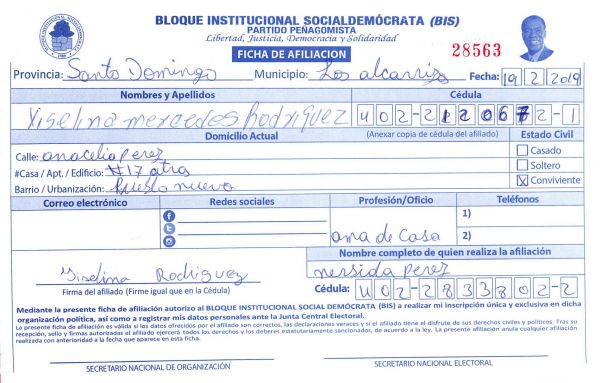 BLOQUE INSTITUCIONAL SOCIALDEMÓCRATA (BIS)
PARTIDO PEÑAGOMISTA
Libertad, Justicia, Democracia y Solidaridad
FICHA DE AFILIACION
28563
Provincia: Santo Domingo Municipio: Los alcarrizo Fecha: 19 2 2019
Nombres y Apellidos Cédula
Yiselina mercedes Rodriguez 402-2120672-1
Domicilio Actual (Anexar copia de cédula del afiliado) Estado Civil
Calle: anacelia perez
#Casa / Apt. / Edificio: #17 atra
Barrio / Urbanización: Pueblo nuevo
Casado
Soltero
X Conviviente
Correo electrónico Redes sociales Profesión/Oficio Teléfonos
1)
ama de Casa 2)
Nombre completo de quien realiza la afiliación
Yiselina Rodriguez nersida perez
Firma del afiliado (Firme igual que en la Cédula) Cédula: 402-2833802-2
Mediante la presente ficha de afiliación autorizo al BLOQUE INSTITUCIONAL SOCIAL DEMÓCRATA (BIS) a realizar mi inscripción única y exclusiva en dicha
organización política, así como a registrar mis datos personales ante la Junta Central Electoral.
La presente ficha de afiliación es válida si los datos ofrecidos por el afiliado son correctos, las declaraciones veraces y si el afiliado tiene el disfrute de sus derechos civiles y políticos. Tras su
recepción, sello y firmas autorizadas el afiliado ejercerá todos los derechos y los deberes estatutariamente sancionados, de acuerdo a la ley. La presente afiliación anula cualquier afiliación
realizada con anterioridad a la fecha que aparece en esta ficha.
SECRETARIO NACIONAL DE ORGANIZACIÓN SECRETARIO NACIONAL ELECTORAL